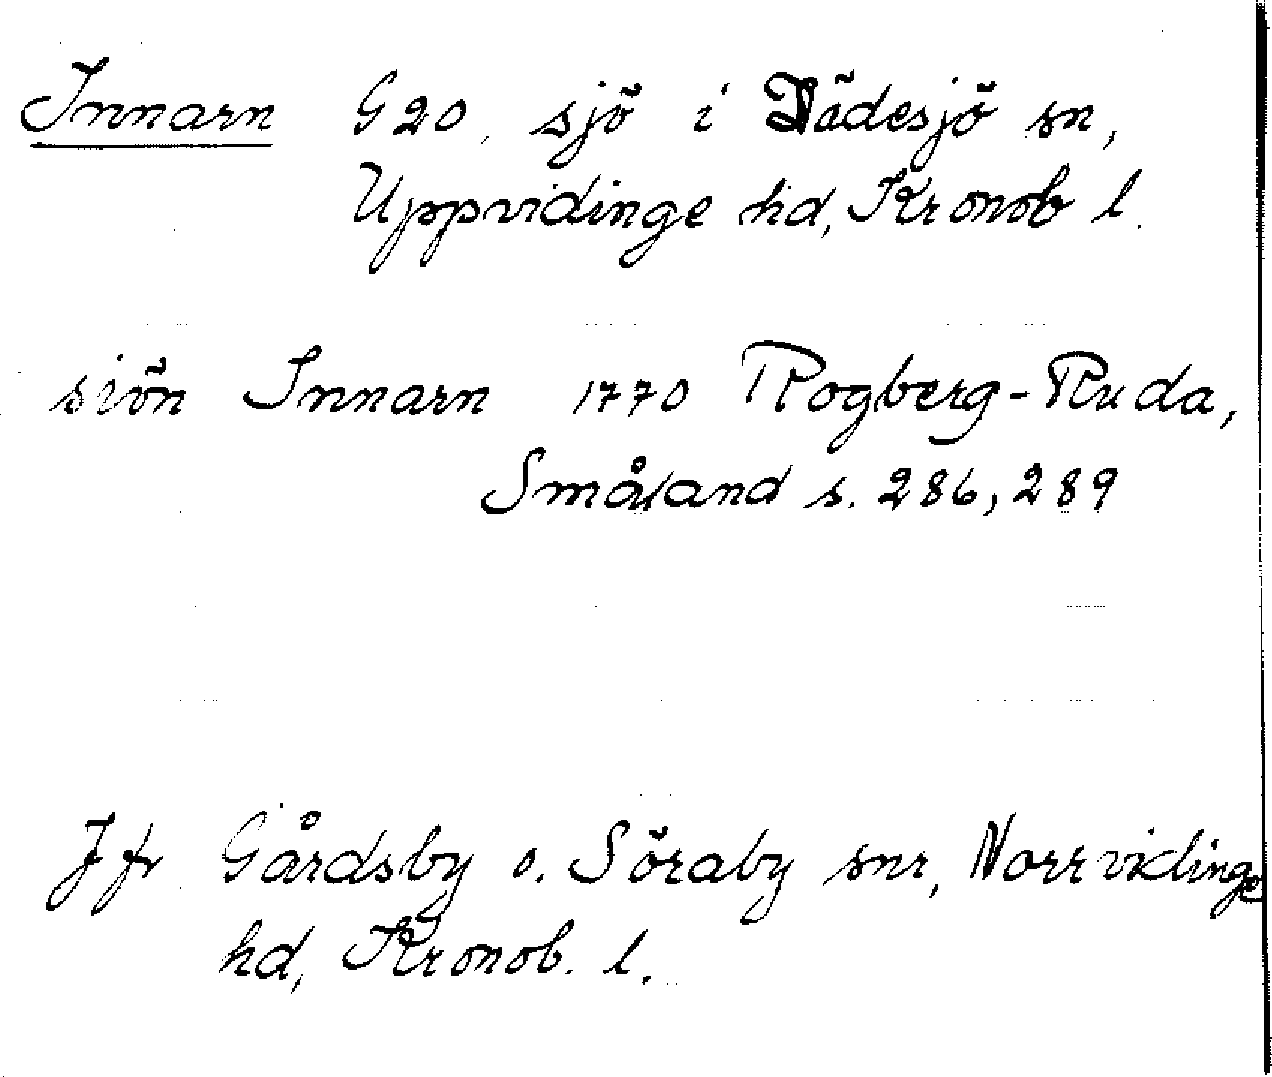 Innarn G20, sjö i Dädesjö sn,
Uppvidinge hd, Kronob l.
siön Innarn 1770 Rogberg-Ruda,
Småland s. 286, 289
Jfr Gårdsby o. Söraby snr, Norrvidinge
hd, Kronob. l.